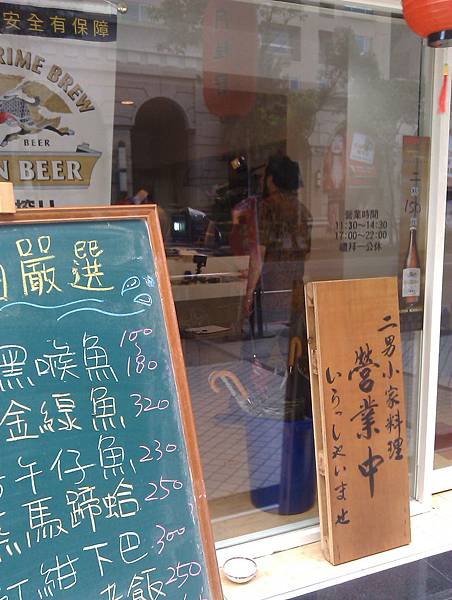 安全有保障
PRIME BREW
BEER
N BEER
嚴選
黑喉魚 100~180
金線魚 320
午仔魚 230
馬蹄蛤 250
紅紺下巴 300
飯 250
營業時間
11:30~14:30
17:00~22:00
禮拜一公休
150
二男小家料理
營業中
いらっしゃいませ